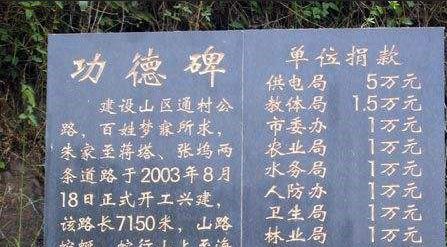 功德碑
建设山区通村公
路，百姓梦寐所求，
朱家至蒋塔、张坞两
条道路于2003年8月
18日正式开工兴建，
该路长7150米，山路
单位捐款
供电局 5万元
教体局 1.5万元
市委办 1万元
农业局 1万元
水务局 1万元
人防办 1万元
卫生局 1万元
林业局 1万元